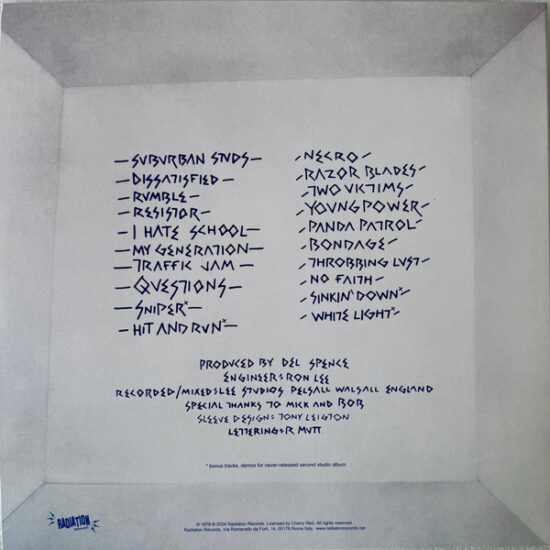 — SUBURBAN STUDS —
— DISSATISFIED —
— RUMBLE —
— RESISTOR —
— I HATE SCHOOL —
— MY GENERATION —
— TRAFFIC JAM —
— QUESTIONS —
— SNIPER* —
— HIT AND RUN* —
- NECRO -
- RAZOR BLADES -
- TWO VICTIMS -
- YOUNG POWER -
- PANDA PATROL -
- BONDAGE -
- THROBBING LUST -
- NO FAITH -
- SINKIN' DOWN* -
- WHITE LIGHT* -
PRODUCED BY DEL SPENCE
ENGINEER: RON LEE
RECORDED/MIXED: LEE STUDIOS PELSALL WALSALL ENGLAND
SPECIAL THANKS TO MICK AND BOB
SLEEVE DESIGN: TONY LEIGTON
LETTERING: R MUTT
* bonus tracks, demos for never-released second studio album
RADIATION
© 1978 ℗ 2024 Radiation Records. Licensed by Cherry Red. All rights reserved.
Radiation Records, Via Romanello da Forlì, 14, 00176 Roma Italy. www.radiationrecords.net